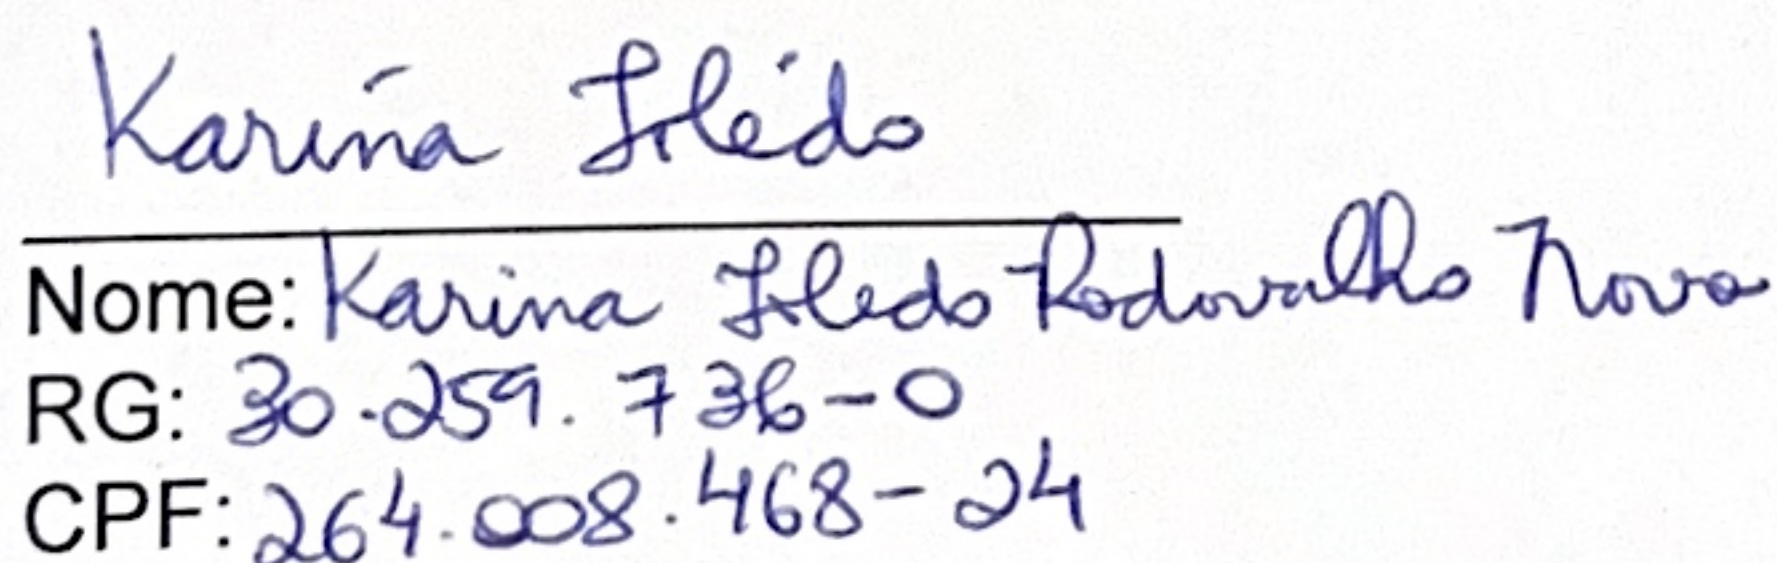 Karina Toledo
Nome: Karina Toledo Rodovalho Novo
RG: 30.259.736-0
CPF: 264.008.468-24